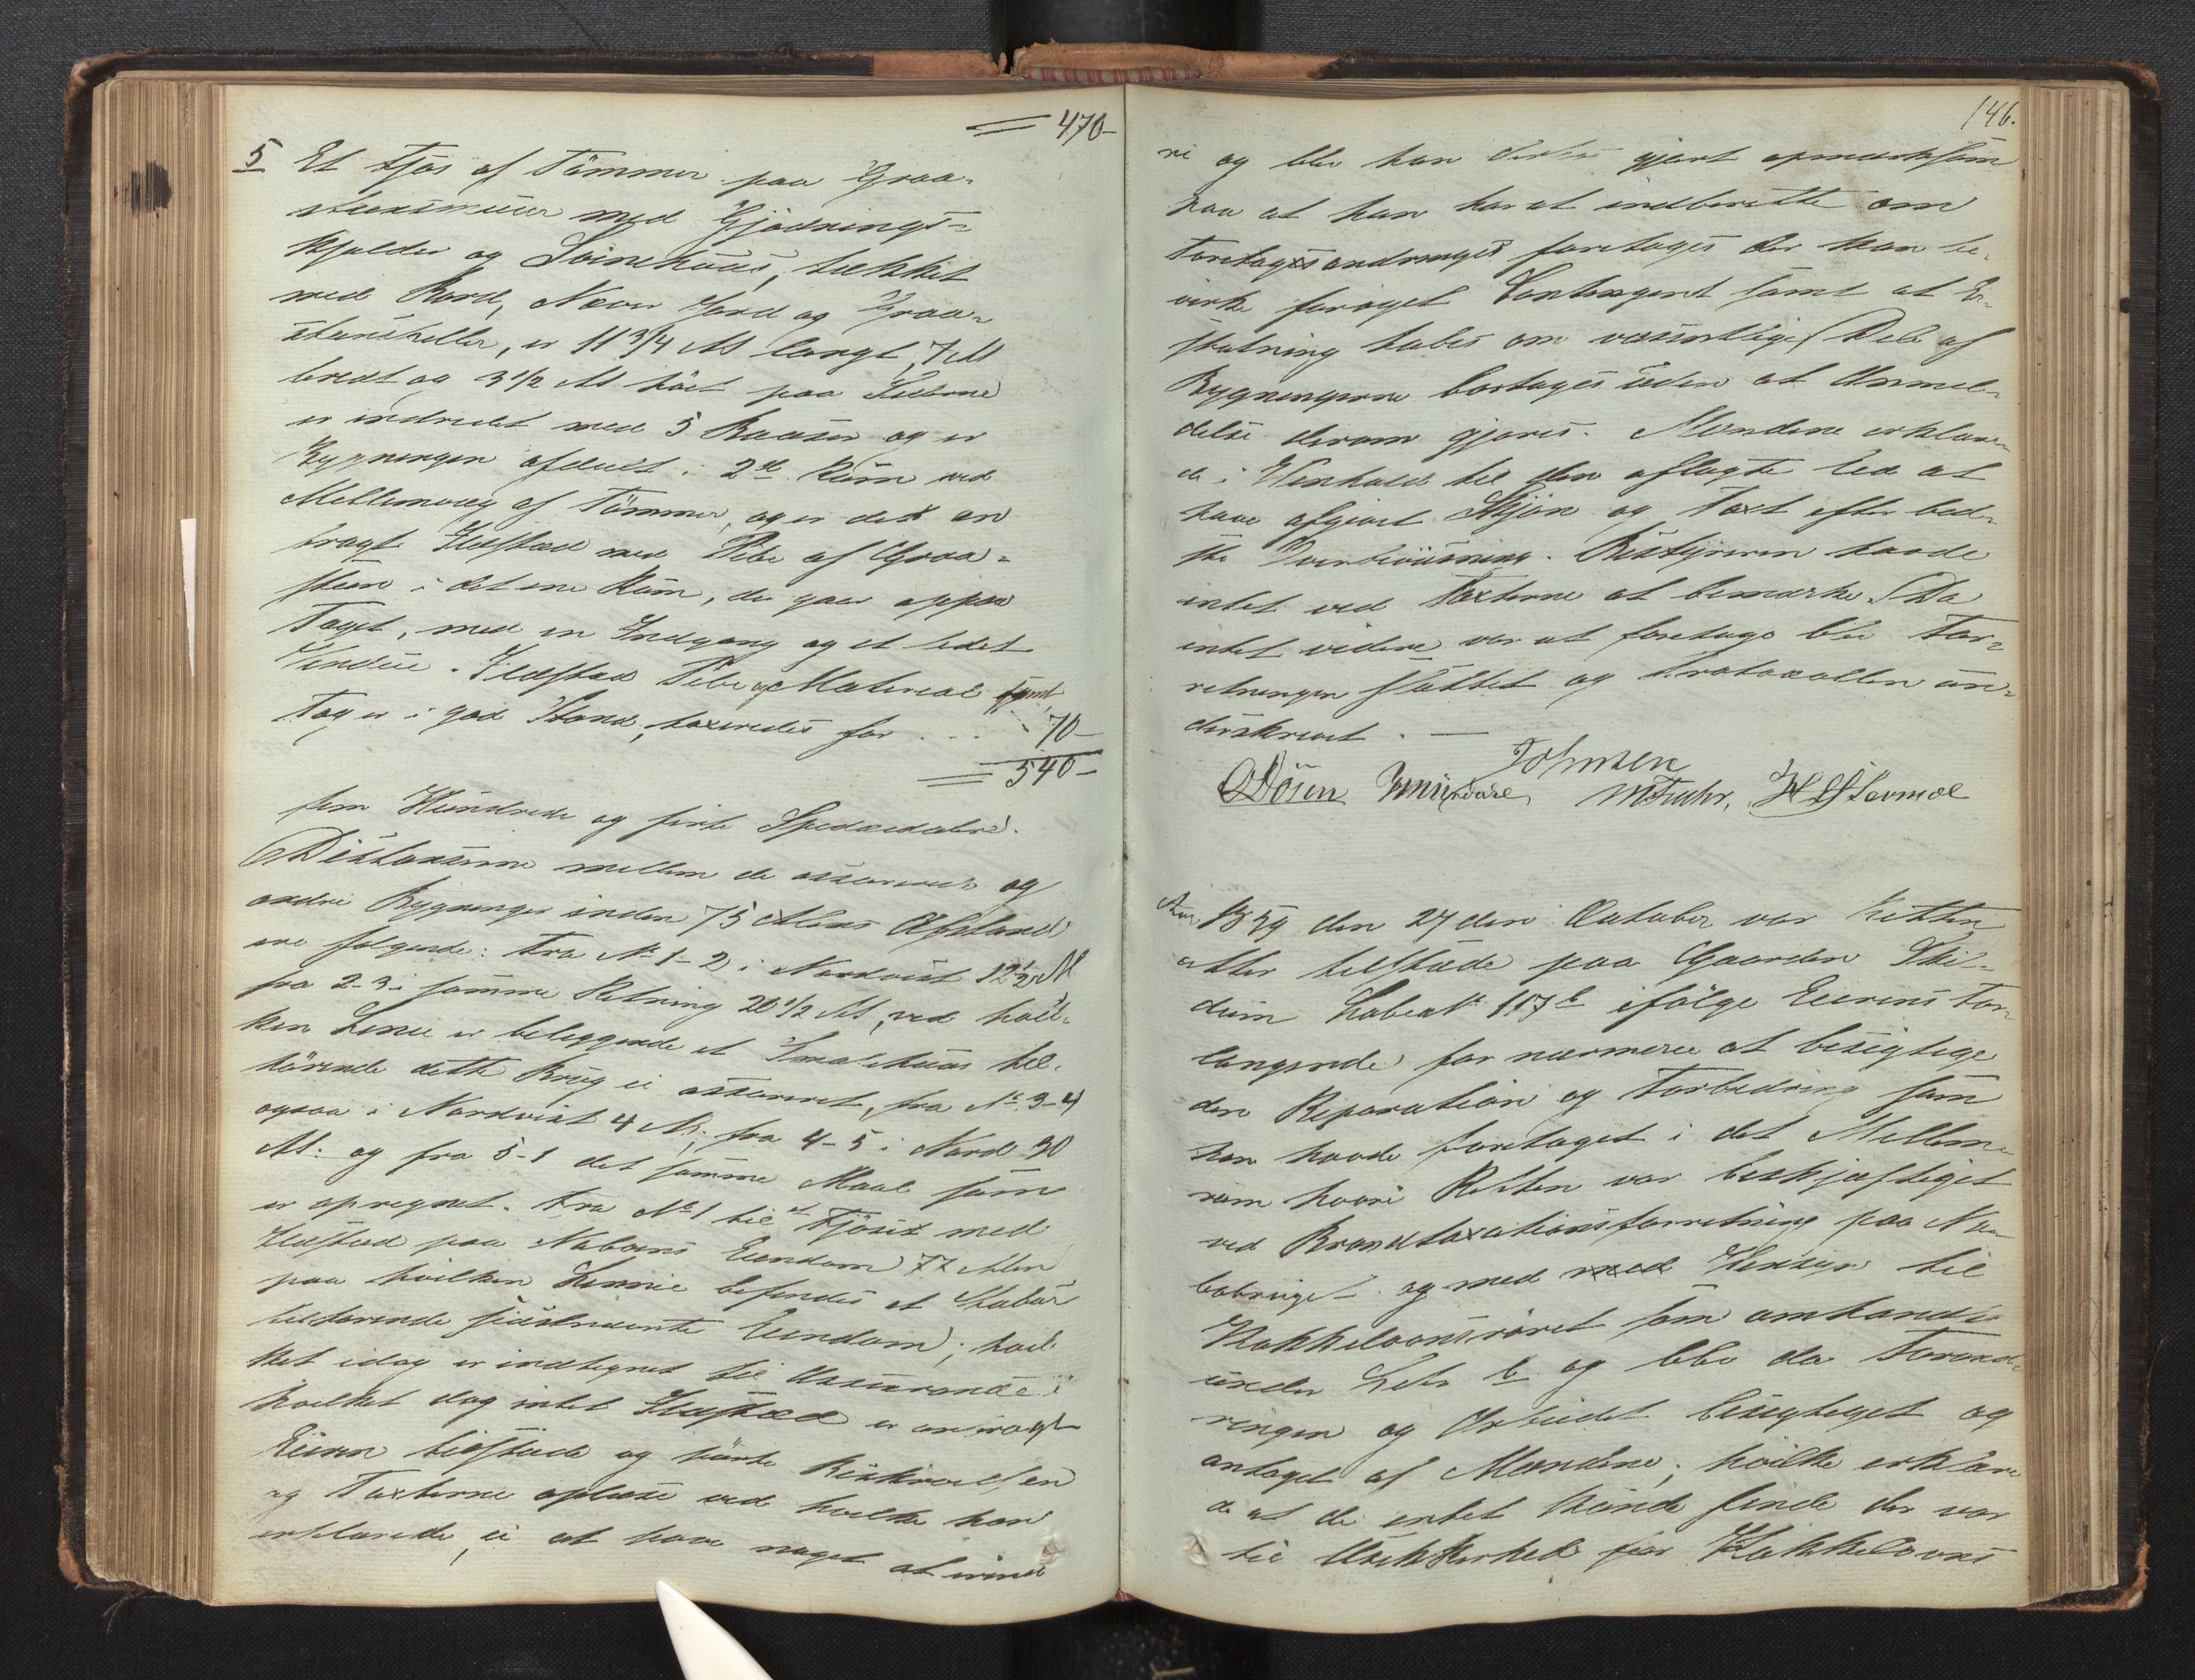 470-
5 Et Fjøs af Tømmer paa Graa-
steensmuur med Gjødnings-
kjelder og Svinehuus, tækket
med Bord, Næver Jord og Graa-
steensheller, er 11 3/4 Al langt, 7 Al
bredt og 3 1/2 Al høit paa Siderne
er indredet med 5 Baaser og er
Bygningen afdeelt i 2de Rum ved
Mellemvæg af Tømmer, og er det an
bragt Ildsted med Pibe af Graa-
steen i det ene Rum, der gaar op paa
Taget, med en Indgang og et lidet
Vindue. Ildsted Pibe og Material samt
Tag er i god Stand, taxeredes for . . . 70-
540-
fem Hundrede og firti Speciedaler.
Distancerne mellem de assurerede og
andre Bygninger inden 75 Alens Afstand
ere følgende: Fra No 1-2 i Nordvest 12 1/2 Al
fra 2-3 i samme Retning 20 1/2 Al, ved hvil-
ken Linie er beliggende et Smalehuus til-
hørende dette Brug ei assureret, fra No 3-4
ogsaa i Nordvest 4 Al; fra 4-5 i Nord 30
Al: og fra 5-1 det samme Maal som
er opregnet. Fra No 1 til et Fjøs med
Ildsted paa Naboens Eiendom 77 Alen
paa hvilken Linnie befindes et Stabur
tilhørende sidstnevnte Eiendom; hvil
ket idag er indtegnet til Assurance i
hvilket dog intet Ildsted er anbragt
Eieren tilstæde og hørte Beskrivelsen
og Taxterne oplæse ved hvilke han
erklærede, ei at have noget at erind
146.
re og blev han derhos gjort opmærksom
paa at han har at indberette om
Foretagsændringer foretages der kan be-
virke forøget Contingent samt at Er-
statning tabes om væsentlige Dele af
Bygningerne borttages uden at Anmel-
delse derom gjøres. Mændene erklære-
de i Henhold til den aflagte Eed at
have afgivet Skjøn og Taxt efter bed-
ste Overbeviisning. Bestyreren havde
intet ved Taxterne at bemærke. Da
intet videre var at foretage blev For-
retningen sluttet og Protocollen un-
derskrevet. —
Johnsen
MFuhr, HLStermoe
Aar 1859 den 27den October var Retten
atter tilstæde paa Gaarden Skil-
dum Løbeno 117b ifølge Eierens For
langende for nærmere at besigtige
den Reparation og Forbedring som
han havde foretaget i det Mellem-
rum hvori Retten var beskjæftiget
ved Brandtaxationsforretning paa Na-
bobruget og med med Hensyn til
Kakkelovnsrøret som omhandles
under Litr b og blev da Forand-
ringen og Arbeidet besigtiget og
antaget af Mændene; hvilke erklære
de at de intet kunde finde der var
til Usikkerhed for Kakkelovns